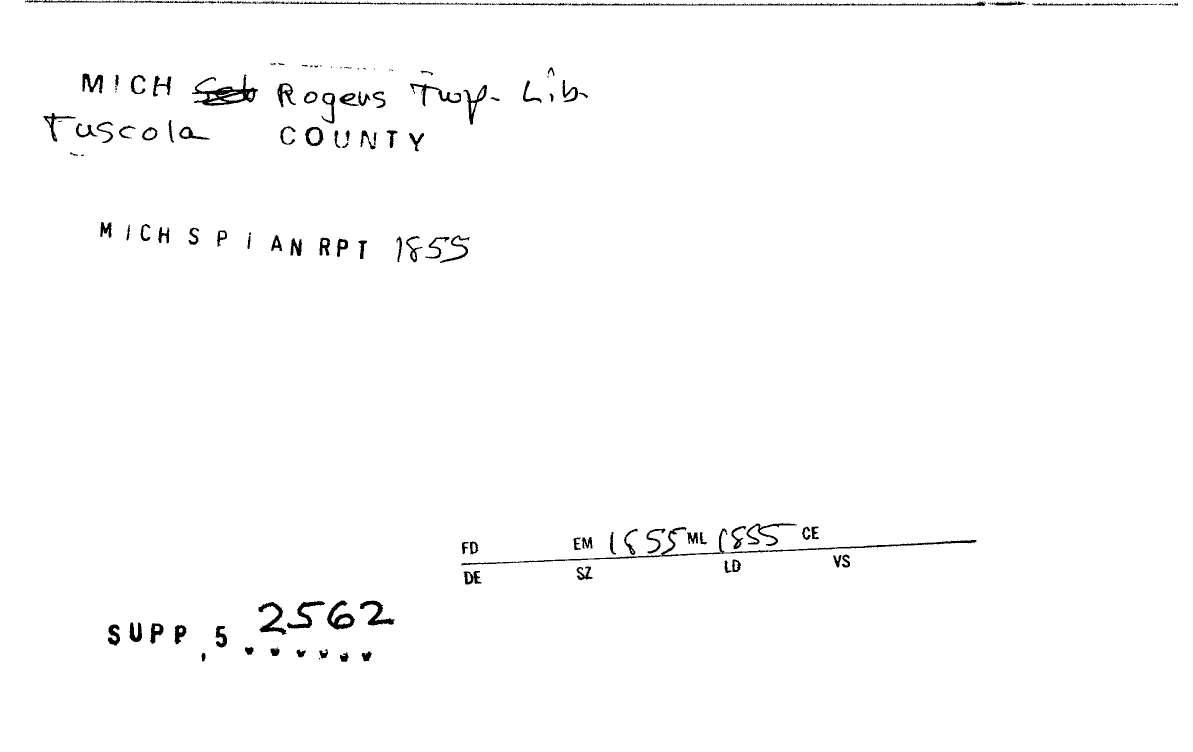 MICH Rogers Twp. Lib.
Tuscola COUNTY
MICH S P I AN RPT 1855
FD EM 1855 ML 1855 CE
DE SZ LD VS
SUPP, 5 2562